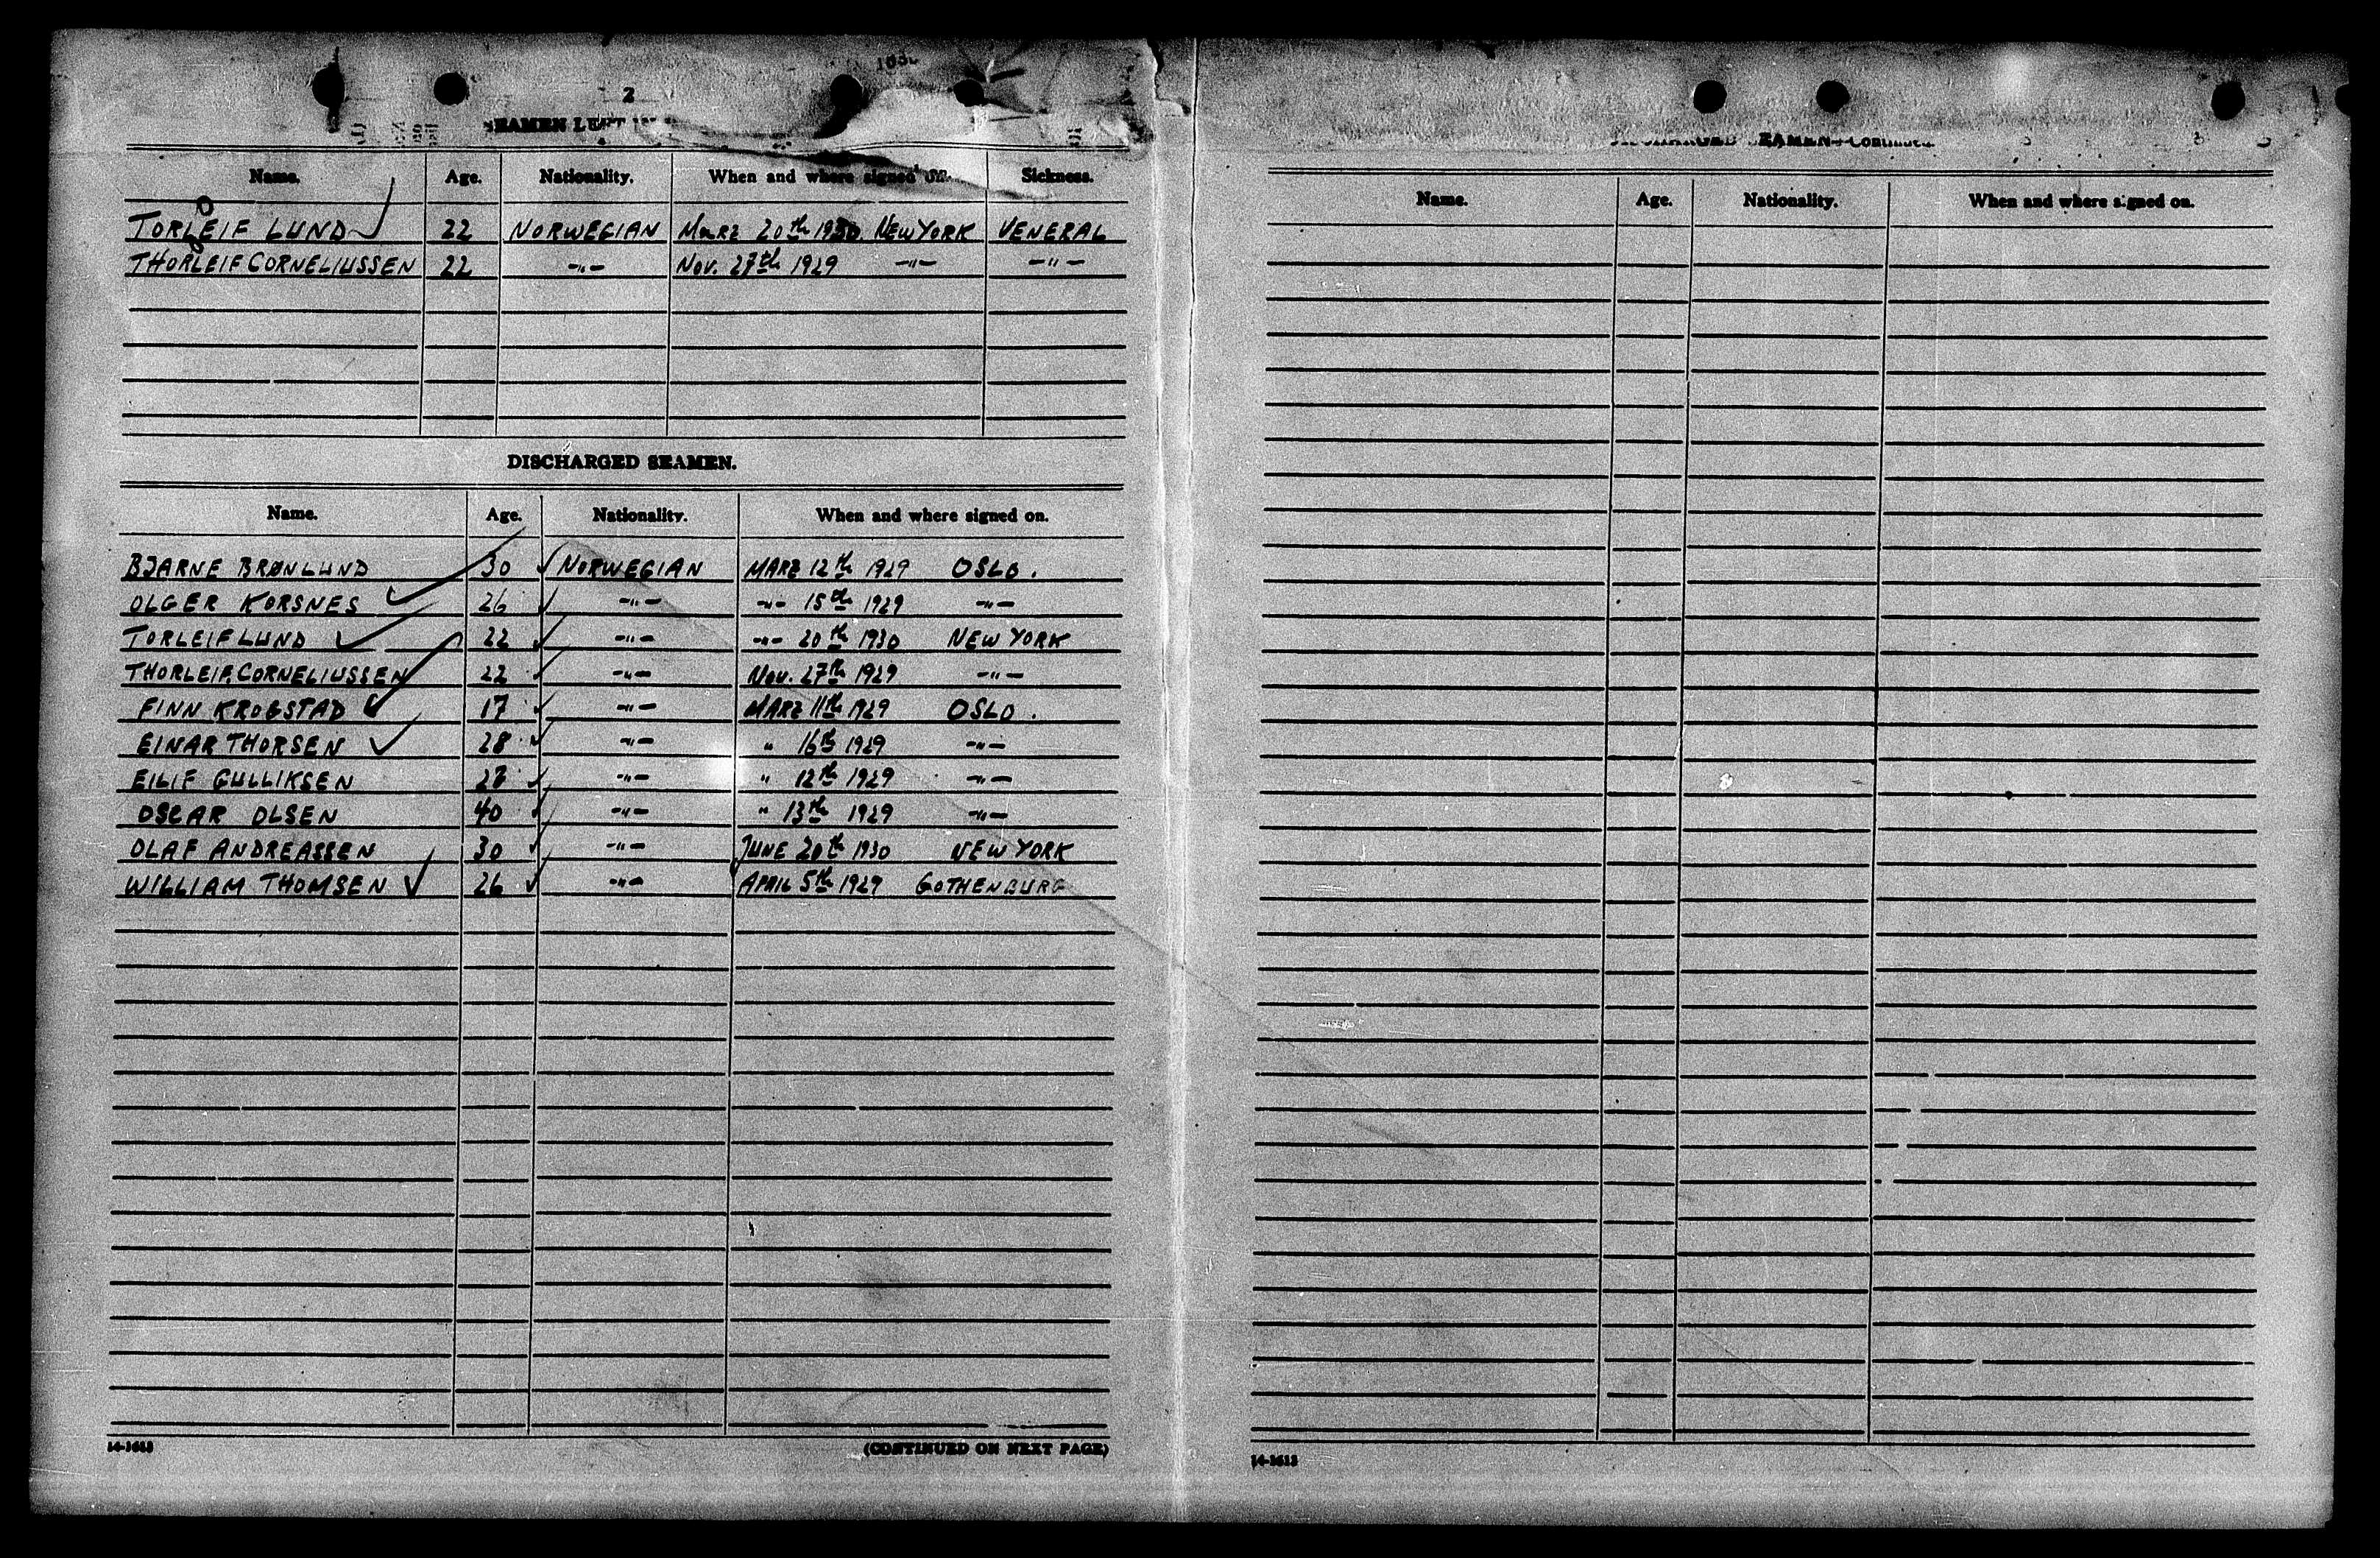 2
SEAMEN LEFT
Name. Age. Nationality. When and where signed on. Sickness.
TORLEIF LUND 22 NORWEGIAN MARZ 20th 1930. NEW YORK VENERAL
THORLEIF CORNELIUSSEN 22 -"- Nov. 27th 1929 -"- -"-
DISCHARGED SEAMEN.
Name. Age. Nationality. When and where signed on.
BJARNE BRØNLUND 30 NORWEGIAN MARZ 12th 1929 OSLO.
OLGER KORSNES 26 -"- -"- 15th 1929 -"-
TORLEIF LUND 22 -"- -"- 20th 1930 NEW YORK
THORLEIF CORNELIUSSEN 22 -"- Nov. 27th 1929 -"-
FINN KROGSTAD 17 -"- MARZ 11th 1929 OSLO.
EINAR THORSEN 28 -"- " 16th 1929 -"-
EILIF GULLIKSEN -"- " 12th 1929 -"-
OSCAR OLSEN 40 -"- " 13th 1929 -"-
OLAF ANDREASSEN 30 -"- JUNE 20th 1930 NEW YORK
WILLIAM THOMSEN 26 -"- APRIL 5th 1929 GOTHENBURG
14-1613
(CONTINUED ON NEXT PAGE)
DISCHARGED SEAMEN—Continued.
Name. Age. Nationality. When and where signed on.
14-1613